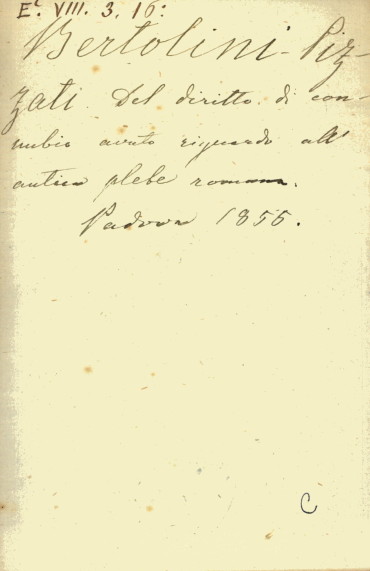 E.ᶜ VIII. 3. 16:
Bertolini-Piz-
zati. Del diritto di con-
nubio avuto riguardo all'
antica plebe romana.
Padova 1856.
C